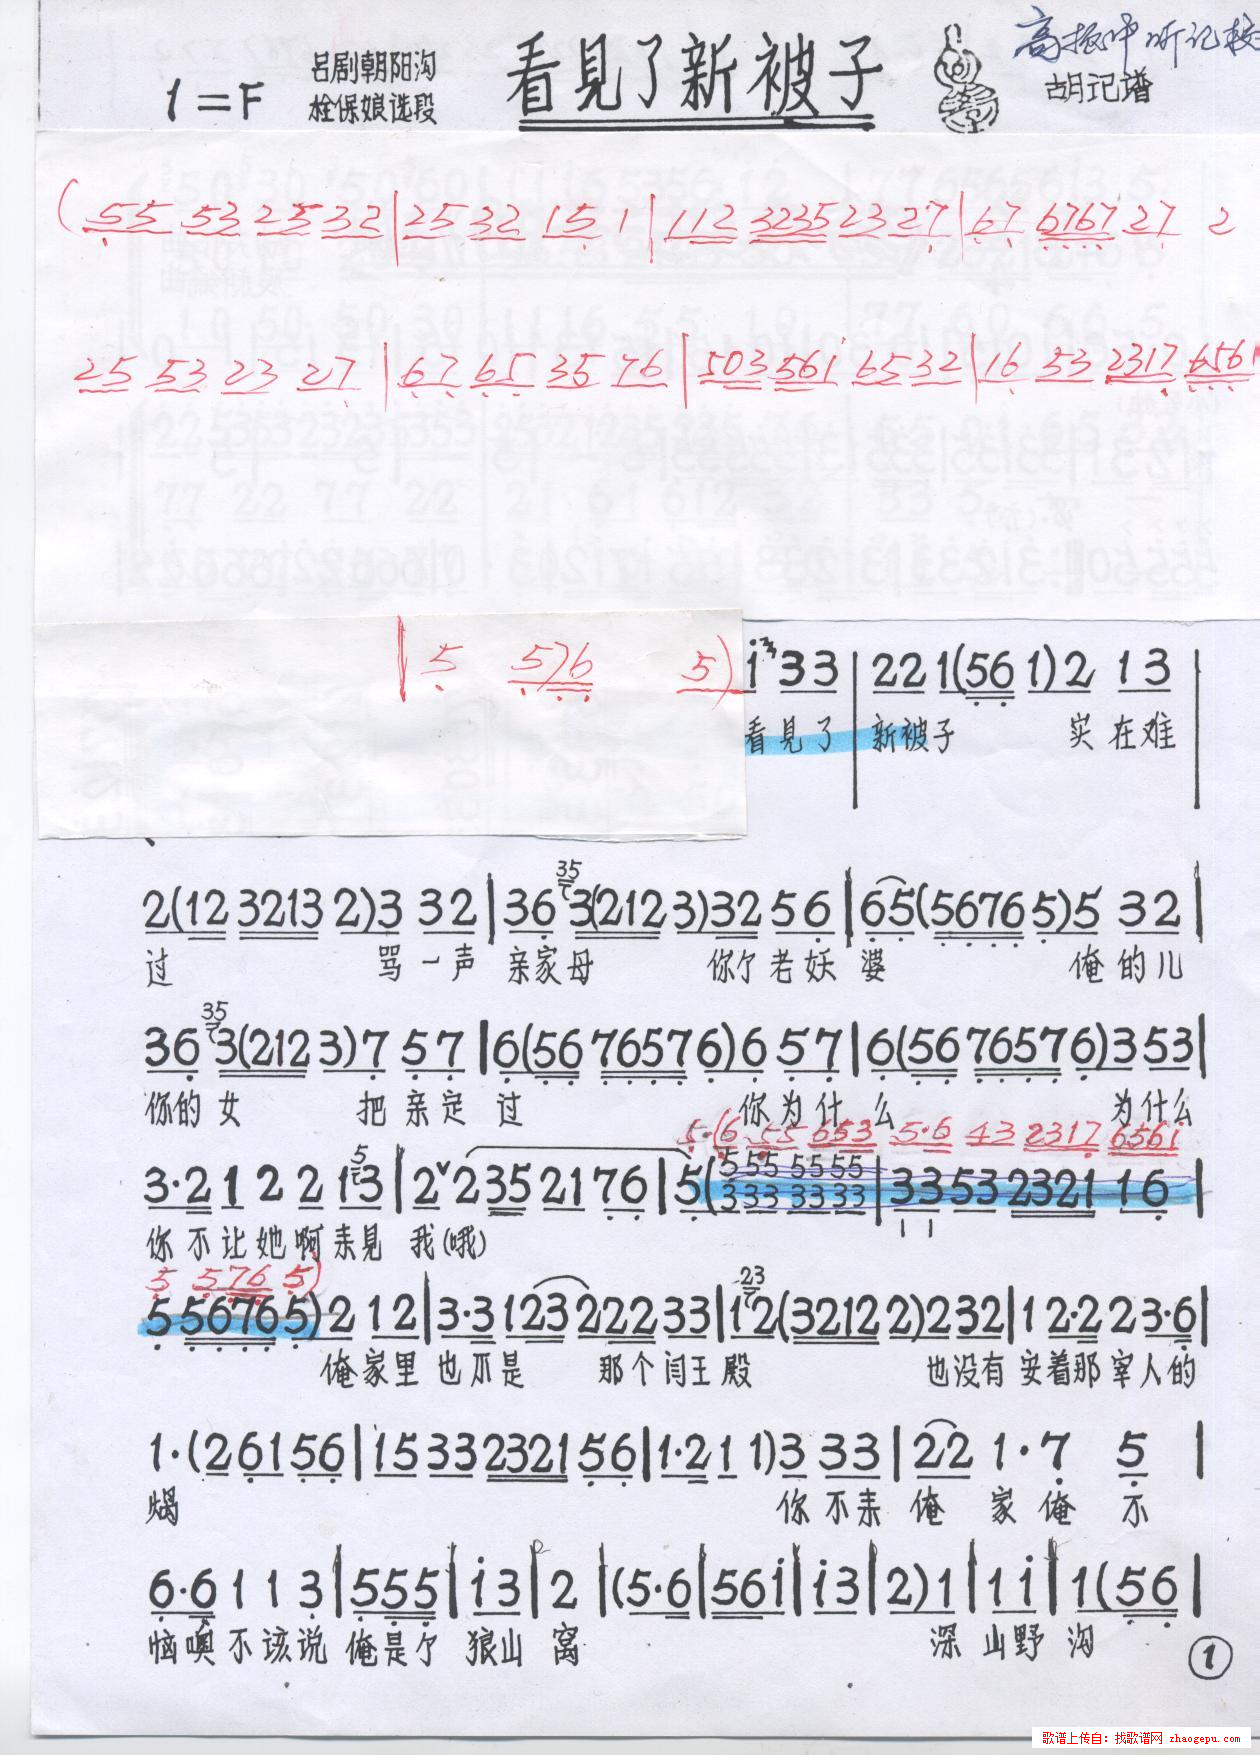 看見了新被子
高振华听记校
吕剧朝阳沟
栓保娘选段
胡記譜
1=F
(55 53 25 32|25 32 15 1|112 3235 23 27|67 6767 27 2
25 53 23 27|67 65 35 76|503 561 65 32|16 53 2317 6561
|5 576 5) i 33|22 1(56 1) 2 13
看見了 新被子 实在难
2(12 3213 2)3 32|36 35 3(212 3)32 56|65(5676 5)5 32|
过 骂一声 亲家母 你个老妖婆 俺的儿
36 35 3(212 3)7 57|6(56 7657 6)6 57|6(56 7657 6)3 53|
你的女 把亲定过 你为什么 为什么
5·(6 55 653 5·6 43 2317 6561
3·2 1 2 2 5 13|2 2 35 21 76|5(5 55 55 55
333 33 33|33 53 2321 16|
你不让她啊来見我(哦)
5 576 5)
5 5676 5)2 12|3·3 123 222 33|23 12(3212 2)2 32|1 2·2 2 3·6|
俺家里也不是 那个闫王殿 也没有安着那宰人的
1·(2 61 56|15 33 2321 56|1·2 1 1)3 33|22 1·7 5|
锅 你不来俺家俺不
6·6 1 1 3|555|i3|2|(5·6|561|i3|2)1|1i|1(56|
恼噢不该说俺是个狼山窝 深山野沟
1
歌谱上传自：找歌谱网 zhaogepu.com